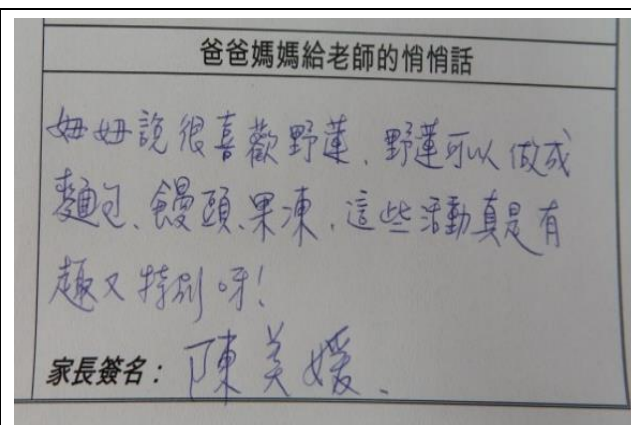 爸爸媽媽給老師的悄悄話
妞妞說很喜歡野蓮、野蓮可以做成
麵包、饅頭、果凍，這些活動真是有
趣又特別呀！
家長簽名：陳美媛、